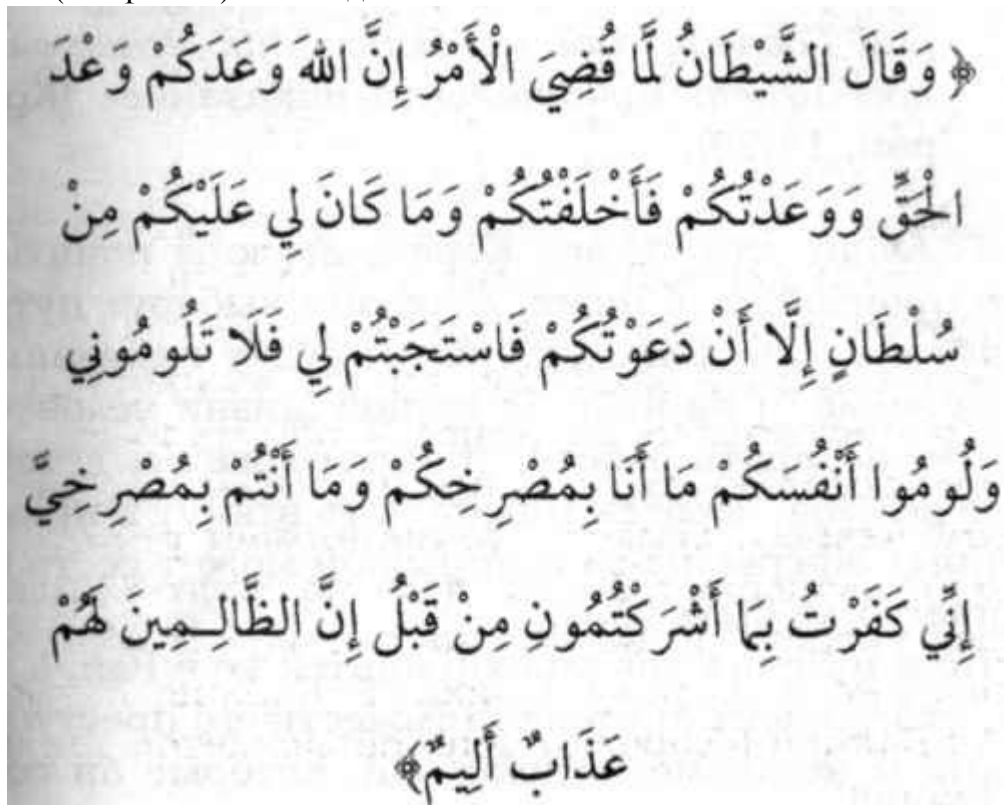 ﴿ وَقَالَ الشَّيْطَانُ لَمَّا قُضِيَ الْأَمْرُ إِنَّ اللهَ وَعَدَكُمْ وَعْدَ
الْحَقِّ وَوَعَدْتُكُمْ فَأَخْلَفْتُكُمْ وَمَا كَانَ لِي عَلَيْكُمْ مِنْ
سُلْطَانٍ إِلَّا أَنْ دَعَوْتُكُمْ فَاسْتَجَبْتُمْ لِي فَلَا تَلُومُونِي
وَلُومُوا أَنْفُسَكُمْ مَا أَنَا بِمُصْرِخِكُمْ وَمَا أَنْتُمْ بِمُصْرِخِيَّ
إِنِّي كَفَرْتُ بِمَا أَشْرَكْتُمُونِ مِنْ قَبْلُ إِنَّ الظَّالِـمِينَ لَهُمْ
عَذَابٌ أَلِيمٌ﴾